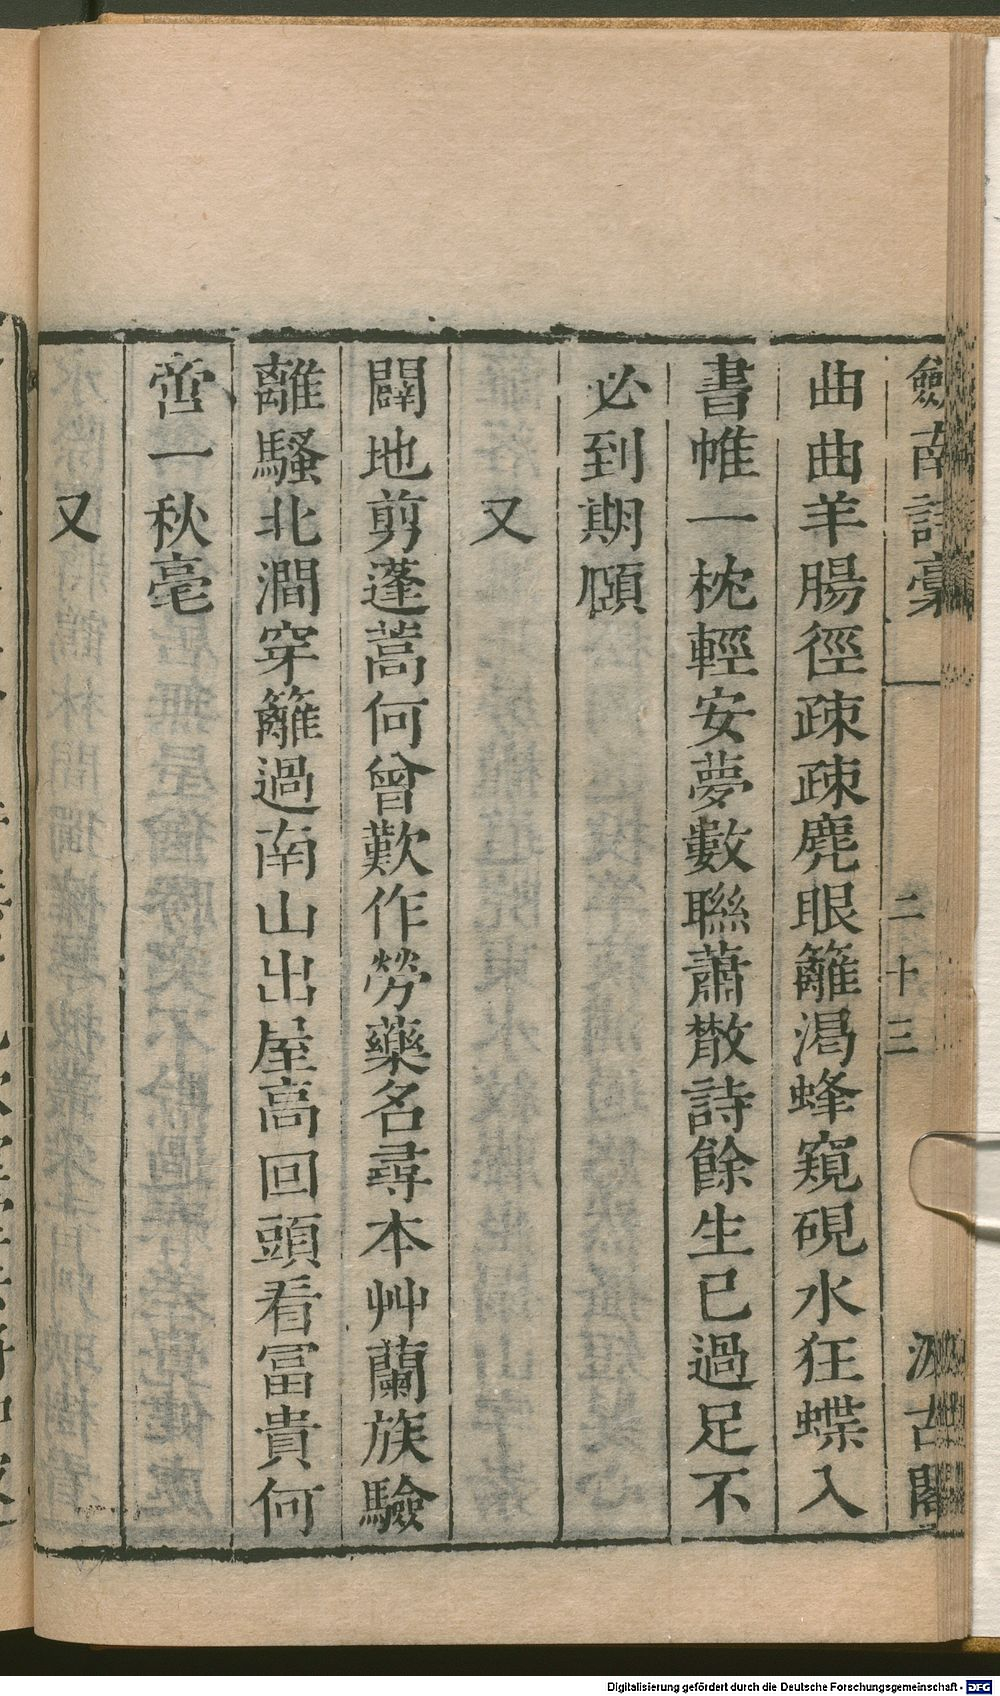 劍南詩稾
二十三
汲古閣
曲曲羊腸徑疎疎麂眼籬渴蜂窺硯水狂蝶入
書帷一枕輕安夢數聯蕭散詩餘生已過足不
必到期頤
又
闢地剪蓬蒿何曾歎作勞藥名尋本艸蘭族驗
離騷北澗穿籬過南山出屋高回頭看冨貴何
啻一秋毫
又
Digitalisierung gefördert durch die Deutsche Forschungsgemeinschaft - DFG